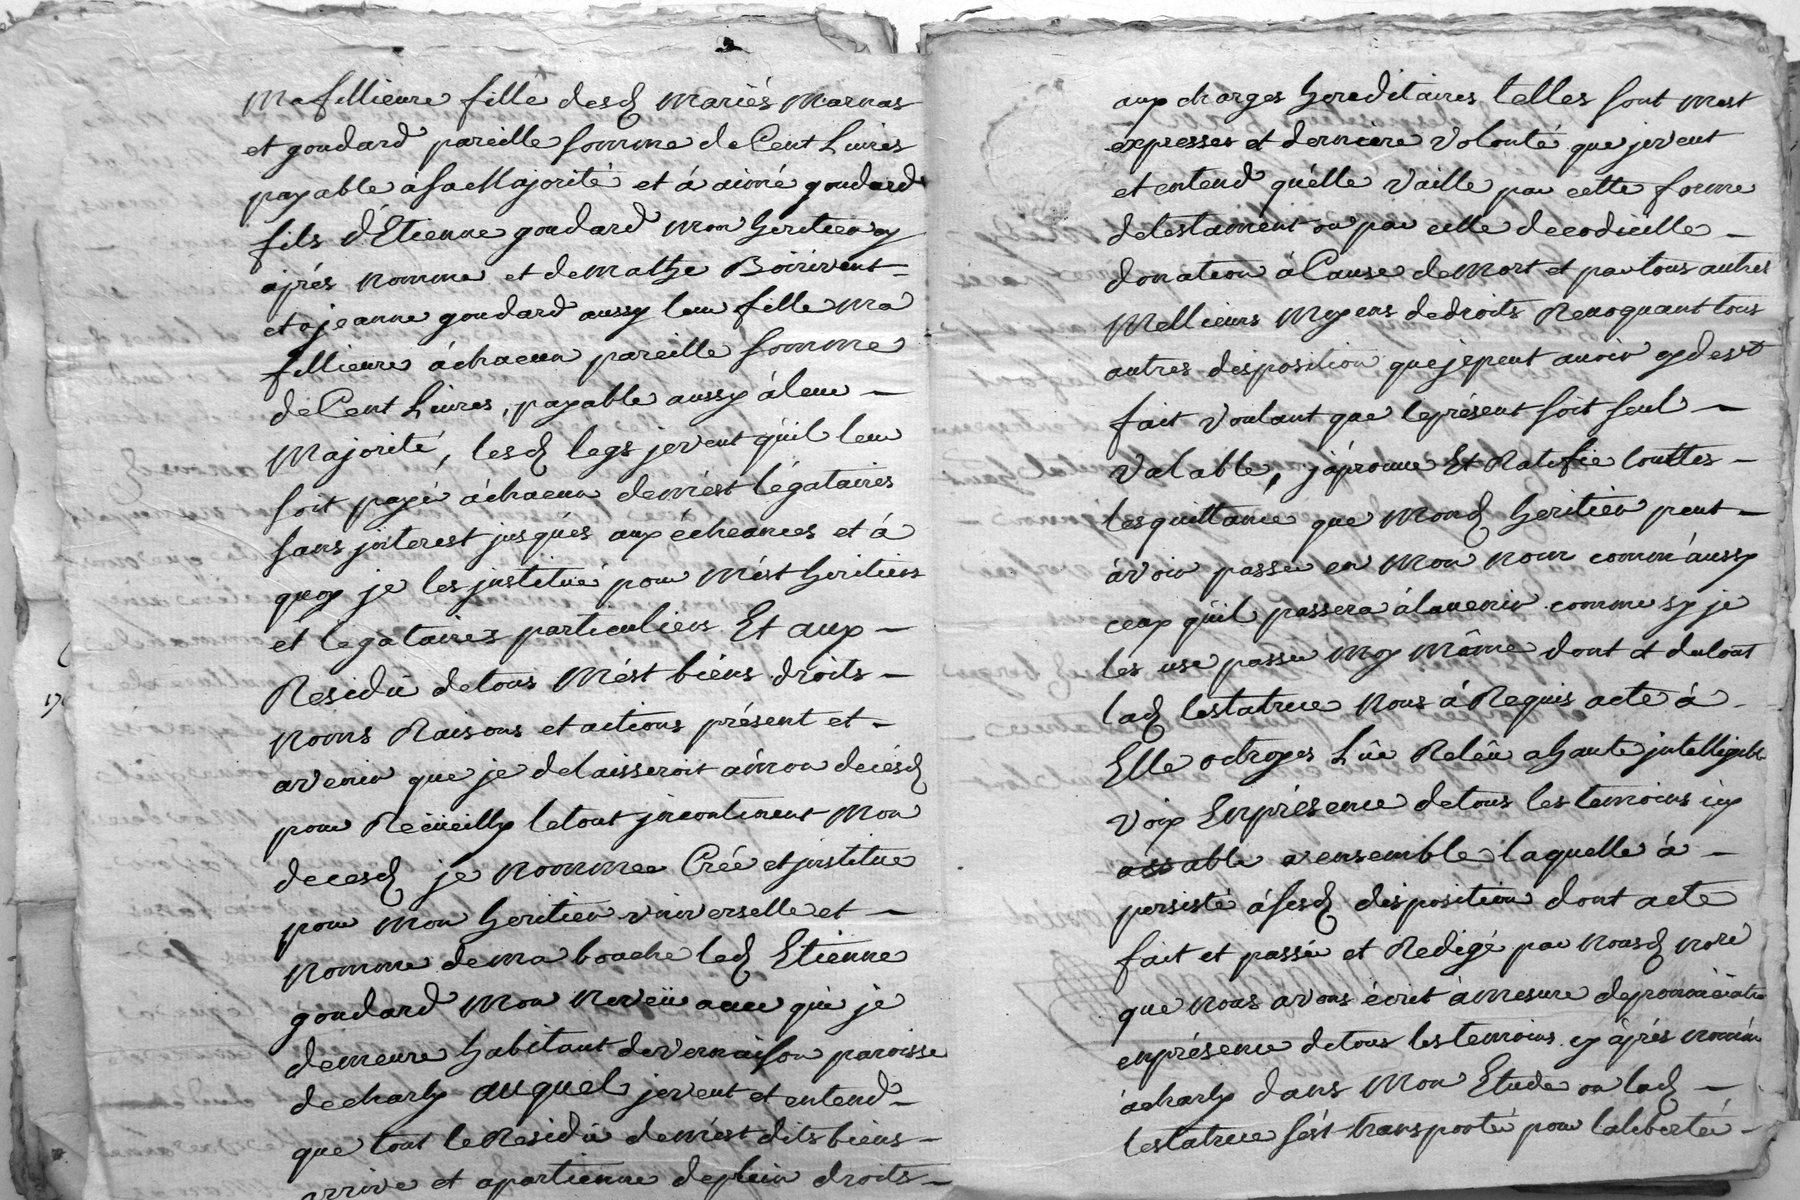 Mafillieure fille desd mariés Marnas
et goudard pareille somme de Cent Livres
payable à sa Majorité et á aimé goudard
fils d'Etienne goudard mon heritier cy
aprés nommé et de mathe Boirivent
et a jeanne goudard aussy leur fille ma
fillieure á chacun pareille somme
de Cent Livres, payable aussy á leur –
Majorité, lesd legs je veut qu'il leur
soit payé á chacun de mést légataires
sans jnterest jusqués aux écheances et á
quoy je les jnstitué pour mést heritiers
et legataires particuliers Et aux –
Residû de tous mést biéns droits –
noms Raisons et actions présent et –
avenir que je delaisseroit á mon decésd
pour Recüeilly le tout jncontinent mon
decesd je nommee Crée et jnstitue
pour mon heritier vniverselle et –
nomme de ma bouche led Etienne
goudard mon neveü avec qui je
demeure habitant de vernaison paroisse
de charly auquel je veut et entend –
que tout le Residû de mést dits biens –
arrive et apartienne de plein droits –
aux charges hereditaires telles sont mest
expresses et derniere volonté que je veut
et entend qu'élle vaille par cette forme
de testament ou par celle de codicille –
donation á Cause de mort et par tous autres
Mellieurs moyens de droits Revoquant tous
autres disposition que je peut avoir cy devt
fait voulant que le présent soit seul –
valable, j'áprouve Et Ratifie touttes –
les quittance que mond heritier peut –
ávoir passée en mon nom comm'aussy
ceux qu'il passera á l'avenir comme sy je
les use passée moy même dont et du tout
lad testatrice nous á Requis acte á –
Elle octroyes Lûe Relûe a haute jntelligible
voix En présence de tous les temoins icy
assable a ensemble laquelle á –
persisté á sesd disposition dont acte
fait et passée et Redigé par nousd nore
que nous avons écrit á mesure
en présence de tous les temoins cy áprés nommé
á charly dans mon Etude ou lad –
testatrice sést transportée pour la liberté –